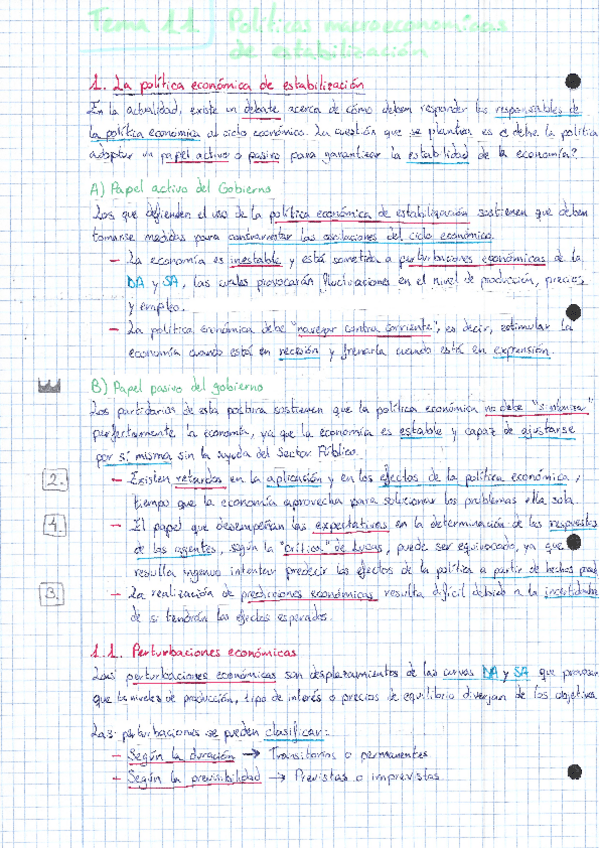 Tema 11 Políticas macroeconómicas
de estabilización
1. La política económica de estabilización
En la actualidad, existe un debate acerca de cómo deben responder los responsables de
la política económica al ciclo económico. La cuestión que se plantea es ¿debe la política
adoptar un papel activo o pasivo para garantizar la estabilidad de la economía?
A) Papel activo del Gobierno
Los que defienden el uso de la política económica de estabilización sostienen que deben
tomarse medidas para contrarrestar las oscilaciones del ciclo económico.
– La economía es inestable y está sometida a perturbaciones económicas de la
DA y SA, las cuales provocarán fluctuaciones en el nivel de producción, precios
y empleo.
– La política económica debe "navegar contra corriente", es decir, estimular la
economía cuando está en recesión y frenarla cuando esté en expansión.
B) Papel pasivo del gobierno
Los partidarios de esta postura sostienen que la política económica no debe
perfectamente la economía, ya que la economía es estable y capaz de ajustarse
por sí misma sin la ayuda del Sector Público.
2. – Existen retardos en la aplicación y en los efectos de la política económica,
tiempo que la economía aprovecha para solucionar los problemas ella sola.
4. – El papel que desempeñan las expectativas en la determinación de las respuestas
de los agentes, según la "crítica" de Lucas, puede ser equivocado, ya que
resulta ingenuo intentar predecir los efectos de la política a partir de hechos
3. – La realización de predicciones económicas resulta difícil debido a la incertidumbre
de si tendrán los efectos esperados.
1.1. Perturbaciones económicas
Las perturbaciones económicas son desplazamientos de las curvas DA y SA que provocan
que los niveles de producción, tipo de interés o precios de equilibrio diverjan de los objetivos.
Las perturbaciones se pueden clasificar:
– Según la duración → Transitorias o permanentes
– Según la previsibilidad → Previstas o imprevistas